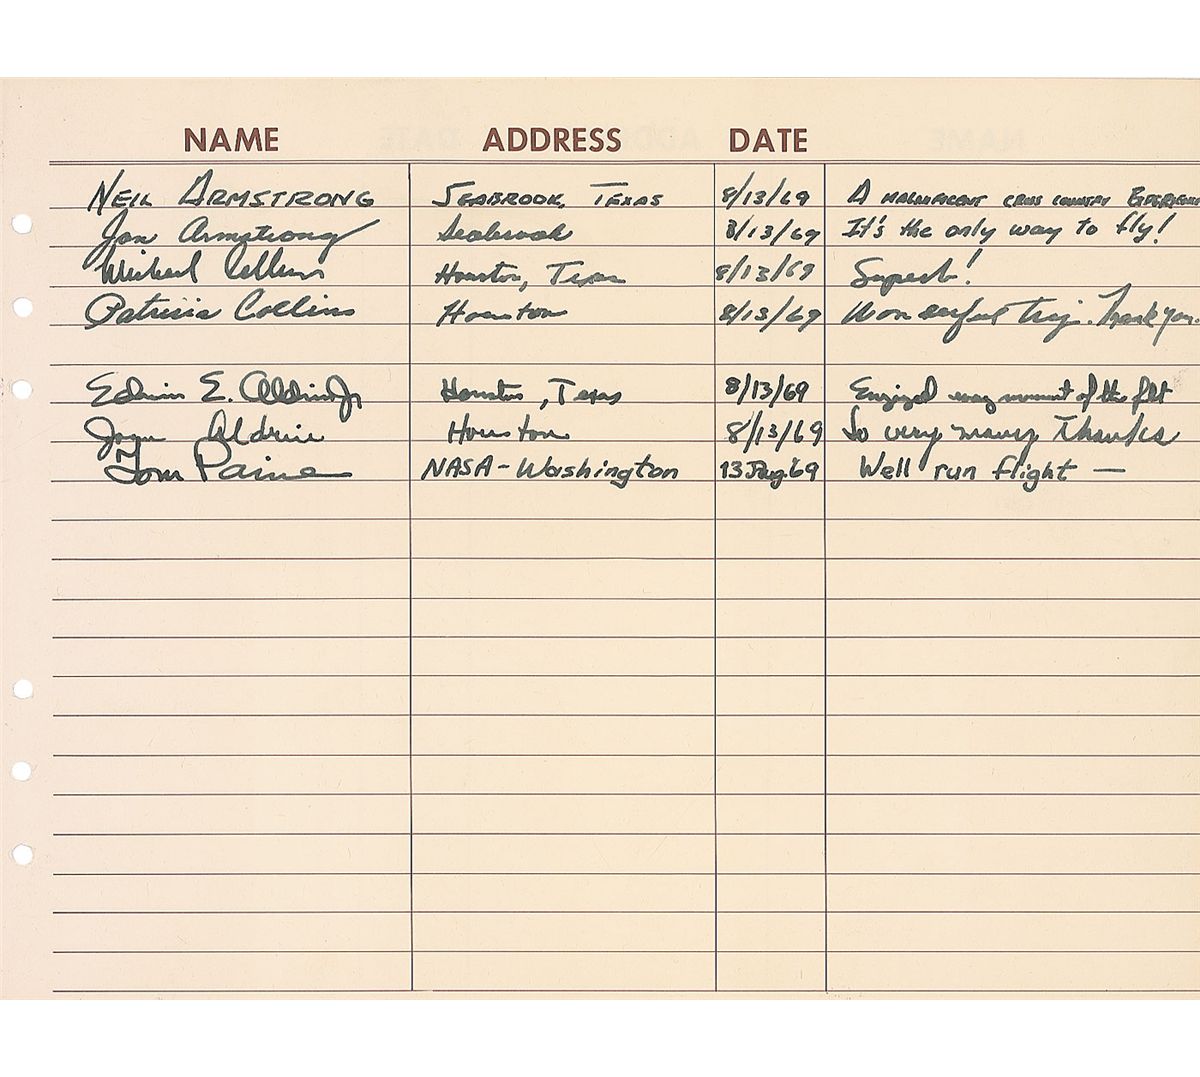 NAME ADDRESS DATE
NEIL ARMSTRONG SEABROOK, TEXAS 8/13/69 A MAGNIFICENT CROSS COUNTRY EXPERIENCE
Jan Armstrong Seabrook 8/13/69 It's the only way to fly!
Michael Collins Houston, Texas 8/13/69 Superb!
Patricia Collins Houston 8/13/69 Wonderful Trip. Thank you.
Edwin E. Aldrin Jr Houston, Texas 8/13/69 Enjoyed every moment of the flt
Joan Aldrin Houston 8/13/69 So very many Thanks
Tom Paine NASA-Washington 13 Aug '69 Well run flight —